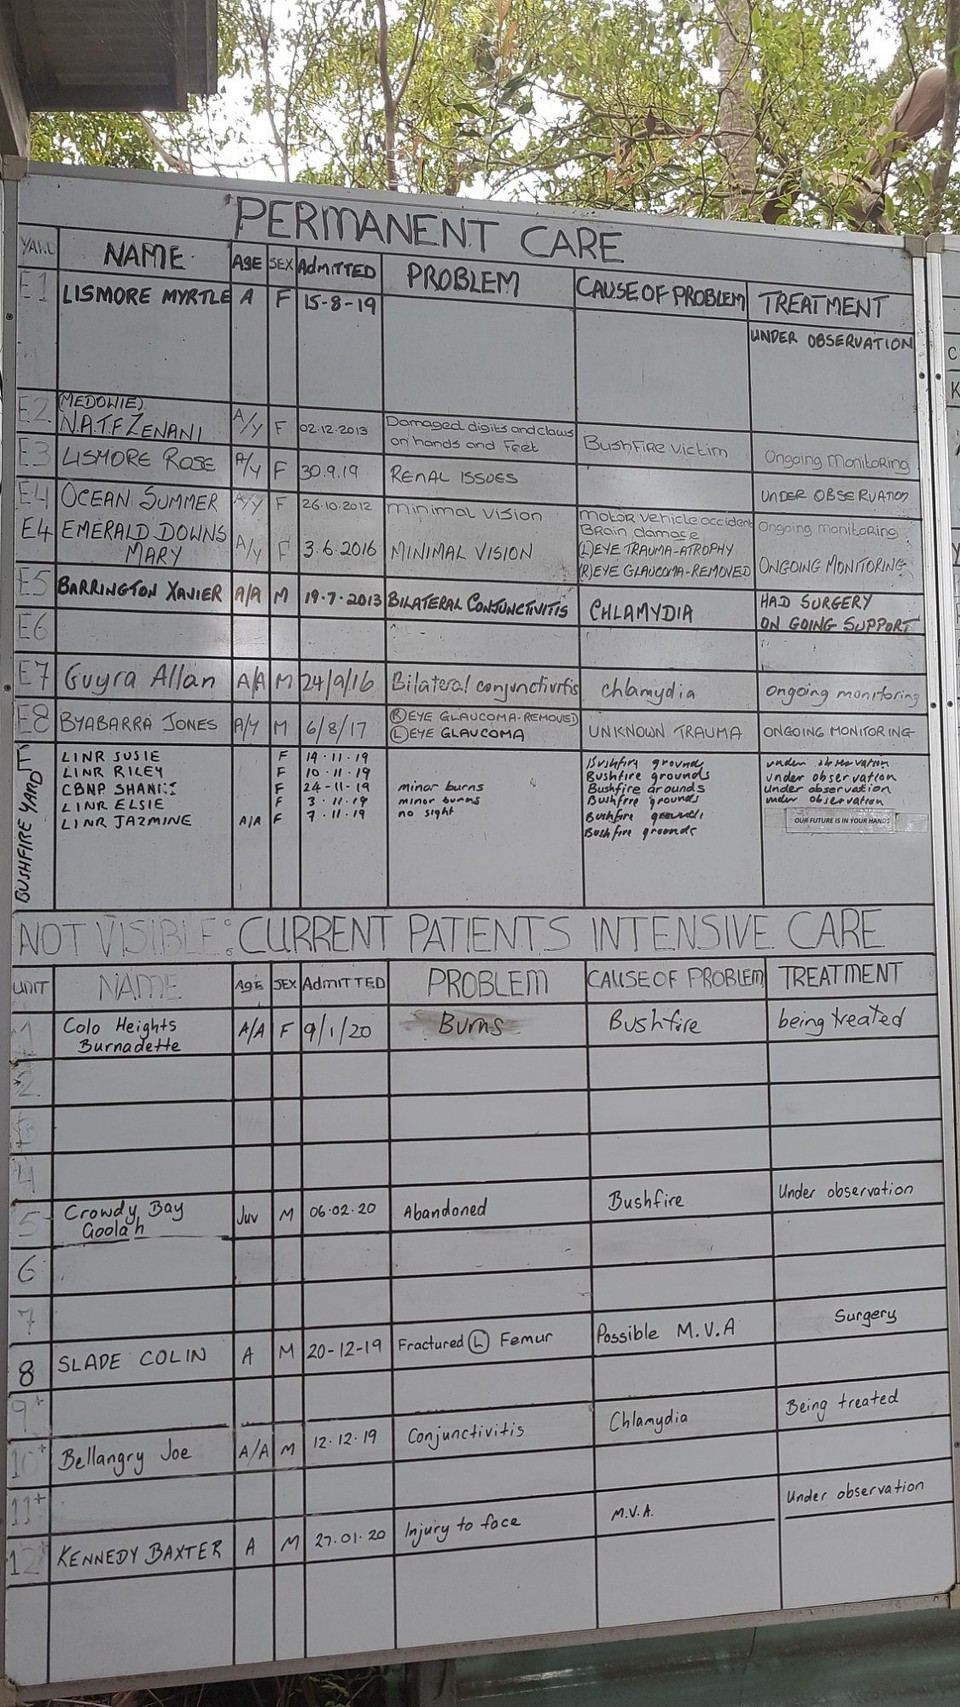 PERMANENT CARE
YARD NAME AGE SEX ADMITTED PROBLEM CAUSE OF PROBLEM TREATMENT
E1 LISMORE MYRTLE A F 15-8-19 UNDER OBSERVATION
E2 (MEDOWIE) N.A.T.F ZENANI A/Y F 02.12.2013 Damaged digits and claws on hands and Feet BushFire victim Ongoing Monitoring
E3 LISMORE ROSE A/Y F 30.9.19 RENAL ISSUES UNDER OBSERVATION
E4 OCEAN SUMMER A/Y F 26.10.2012 Minimal vision Motor vehicle accident Brain damage Ongoing monitoring
E4 EMERALD DOWNS MARY A/Y F 3.6.2016 MINIMAL VISION (L) EYE TRAUMA-ATROPHY (R) EYE GLAUCOMA-REMOVED ONGOING MONITORING
E5 BARRINGTON XAVIER A/A M 19.7.2013 BILATERAL CONJUNCTIVITIS CHLAMYDIA HAD SURGERY ON GOING SUPPORT
E6
E7 Guyra Allan A/A M 24/9/16 Bilateral conjunctivitis chlamydia ongoing monitoring
E8 BYABARRA JONES A/Y M 6/8/17 (R) EYE GLAUCOMA-REMOVED (L) EYE GLAUCOMA UNKNOWN TRAUMA ONGOING MONITORING
BUSHFIRE YARD
LINR SUSIE F 19.11.19 Bushfire grounds under observation
LINR RILEY F 10.11.19 Bushfire grounds under observation
CBNP F 24-11-19 minor burns Bushfire grounds under observation
LINR ELSIE F 3.11.19 minor burns Bushfire grounds under observation
LINR JAZMINE A/A F 7.11.19 no sight Bushfire grounds OUR FUTURE IS IN YOUR HANDS
Bushfire grounds
NOT VISIBLE: CURRENT PATIENTS INTENSIVE CARE
UNIT NAME AGE SEX ADMITTED PROBLEM CAUSE OF PROBLEM TREATMENT
1 Colo Heights Burnadette A/A F 9/1/20 Burns Bushfire being treated
2
3
4
5 Crowdy Bay Goolah Juv M 06.02.20 Abandoned Bushfire Under observation
6
7
8 SLADE COLIN A M 20-12-19 Fractured (L) Femur Possible M.V.A Surgery
9+
10+ Bellangry Joe A/A M 12.12.19 Conjunctivitis Chlamydia Being treated
11+
12 KENNEDY BAXTER A M 27.01.20 Injury to face M.V.A. Under observation